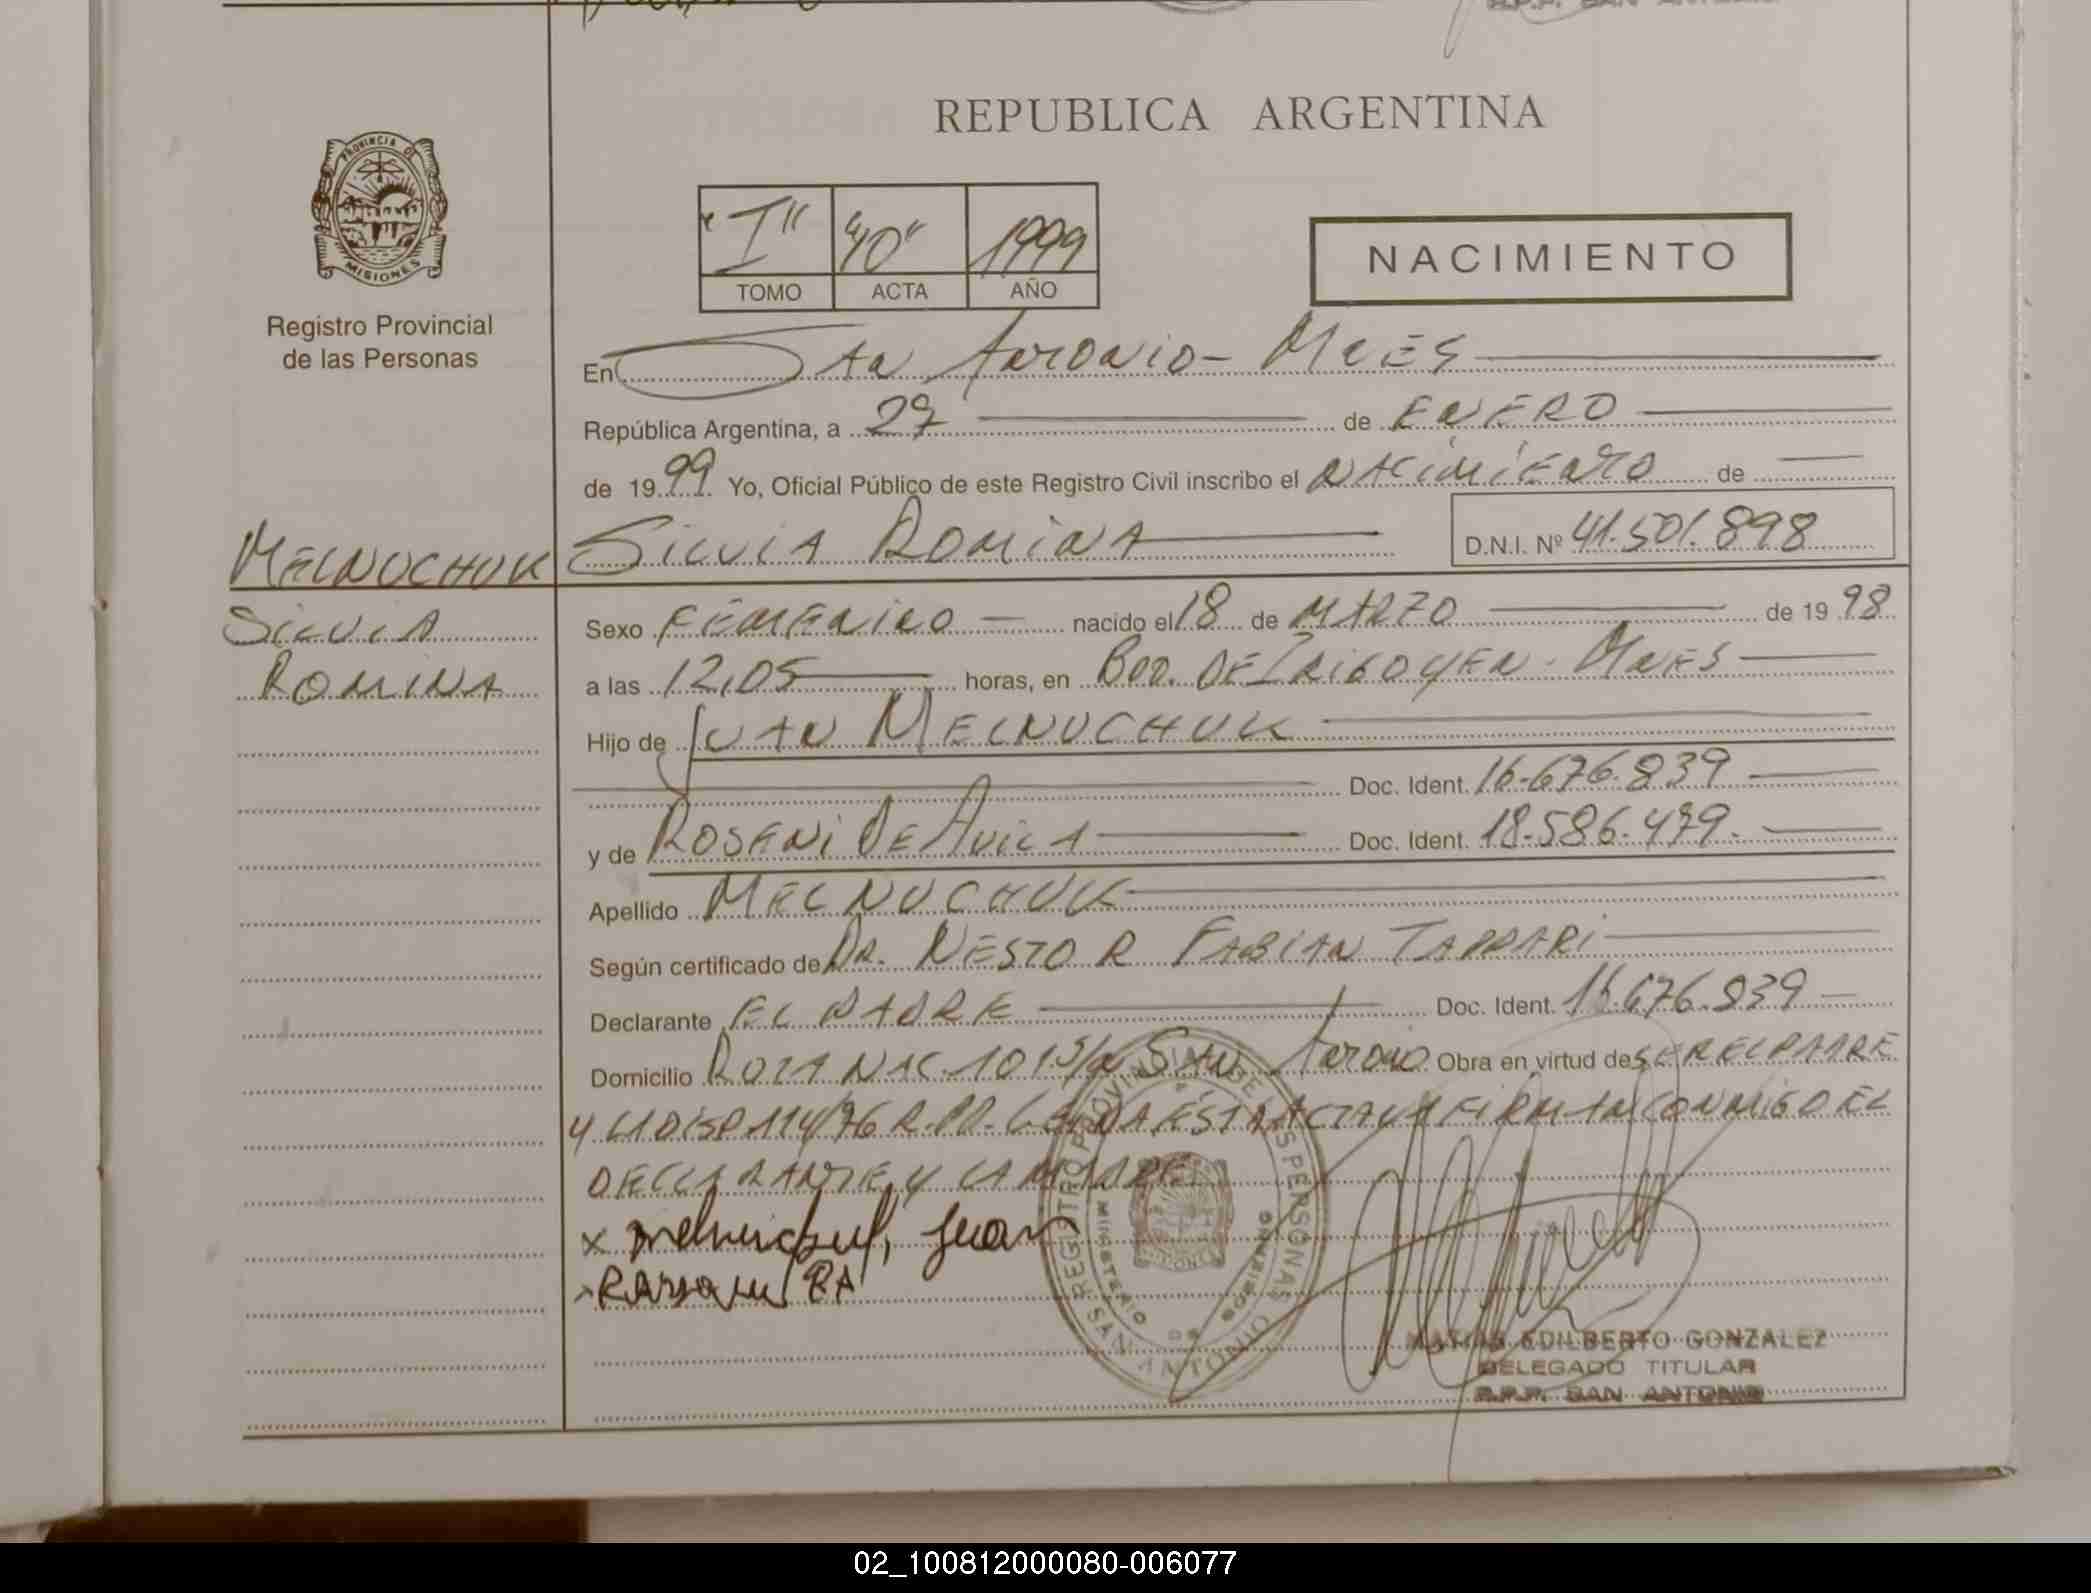 REPUBLICA ARGENTINA
PROVINCIA DE
MISIONES
Registro Provincial
de las Personas
"I" "40" 1999
TOMO ACTA AÑO
NACIMIENTO
En SAN ANTONIO - MNES
República Argentina, a 27 de ENERO
de 1999 Yo, Oficial Público de este Registro Civil inscribo el NACIMIENTO de
MELNUCHUK SILVIA ROMINA D.N.I. Nº 41.501.898
SILVIA
ROMINA
Sexo FEMENINO nacido el 18 de MARZO de 1998
a las 12,05 horas, en BDO. DE IRIGOYEN - MNES
Hijo de JUAN MELNUCHUK
Doc. Ident. 16.676.839
y de ROSENI DE AVILA Doc. Ident. 18.586.479.
Apellido MELNUCHUK
Según certificado de DR. NESTOR FABIAN
Declarante EL PADRE Doc. Ident. 16.676.839
Domicilio RUTA NAC. 101 S/N SAN ANTONIO Obra en virtud de SER EL PADRE
Y LA DISP 114/76 R.P.P. LEIDA ESTA ACTA LA FIRMAN CONMIGO EL
DECLARANTE Y LA MADRE
x melnichuk, Juan
x
REGISTRO PROVINCIAL DE LAS PERSONAS
MINISTERIO DE GOBIERNO
SAN ANTONIO
MATIAS EDILBERTO GONZALEZ
DELEGADO TITULAR
R.P.P. SAN ANTONIO
02_100812000080-006077